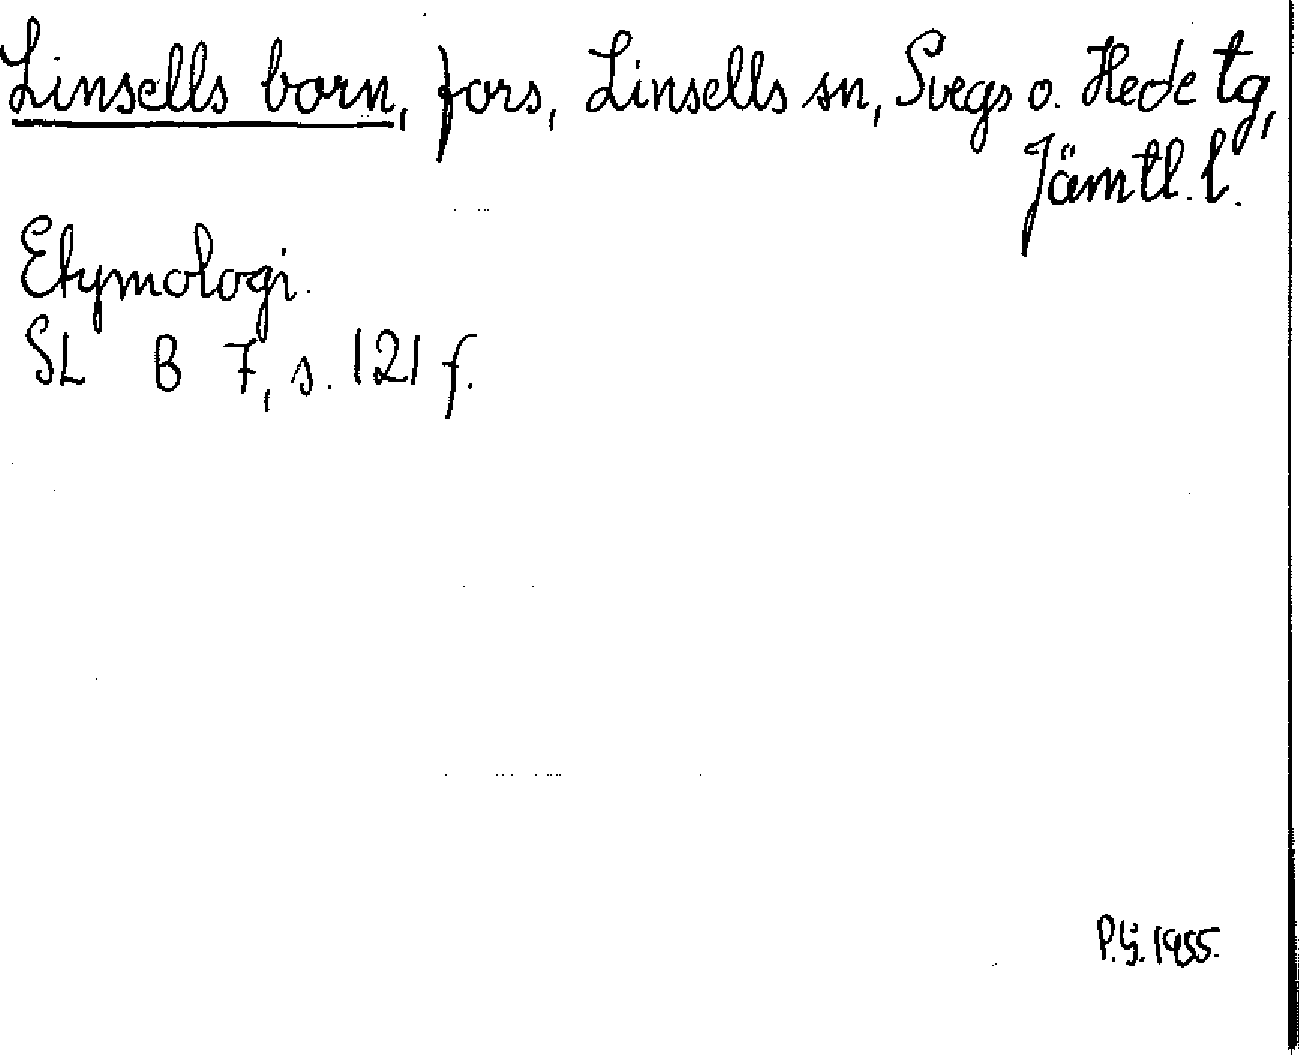 Linsells born, fors, Linsells sn, Svegs o. Hede tg,
Jämtl. l.
Etymologi.
SL B 7, s. 121 f.
P.G. 1955.